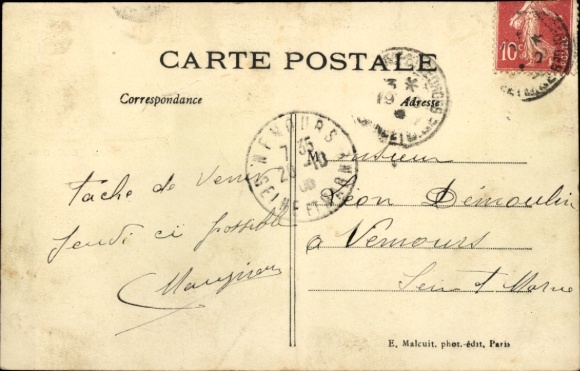 CARTE POSTALE
Correspondance
Adresse
10c
NEMOURS
7 35
20 -10
SEINE ET MARNE
3 *
19
Tache de venir
Jeudi si possible
Monsieur
Léon Démoulin
a Nemours
Seine et Marne
E. Malcuit, phot.-édit, Paris